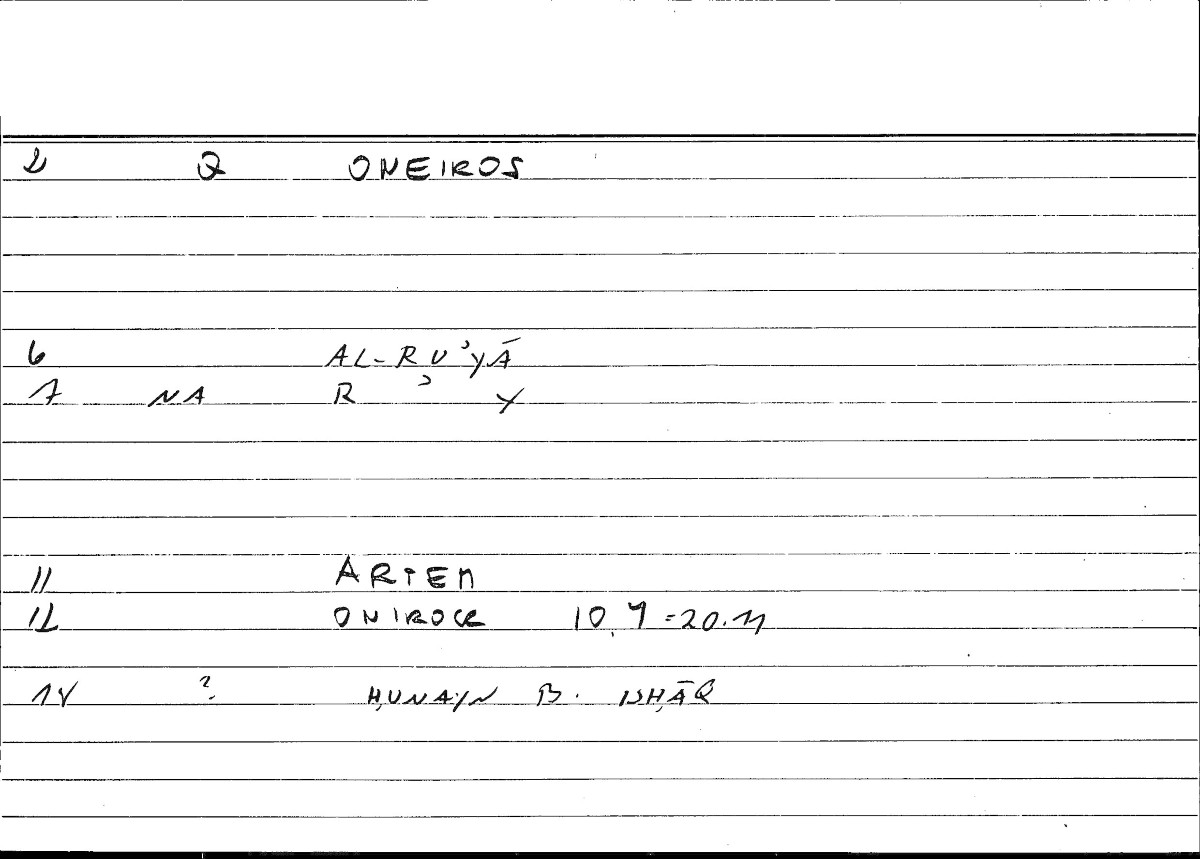 2 Q ONEIROS
6 AL-RUʾYĀ
7 NA R ʾ Y
11 ARTEM
12 ONIROCR 10,9=20.11
14 ? ḤUNAYN B. ISḤĀQ